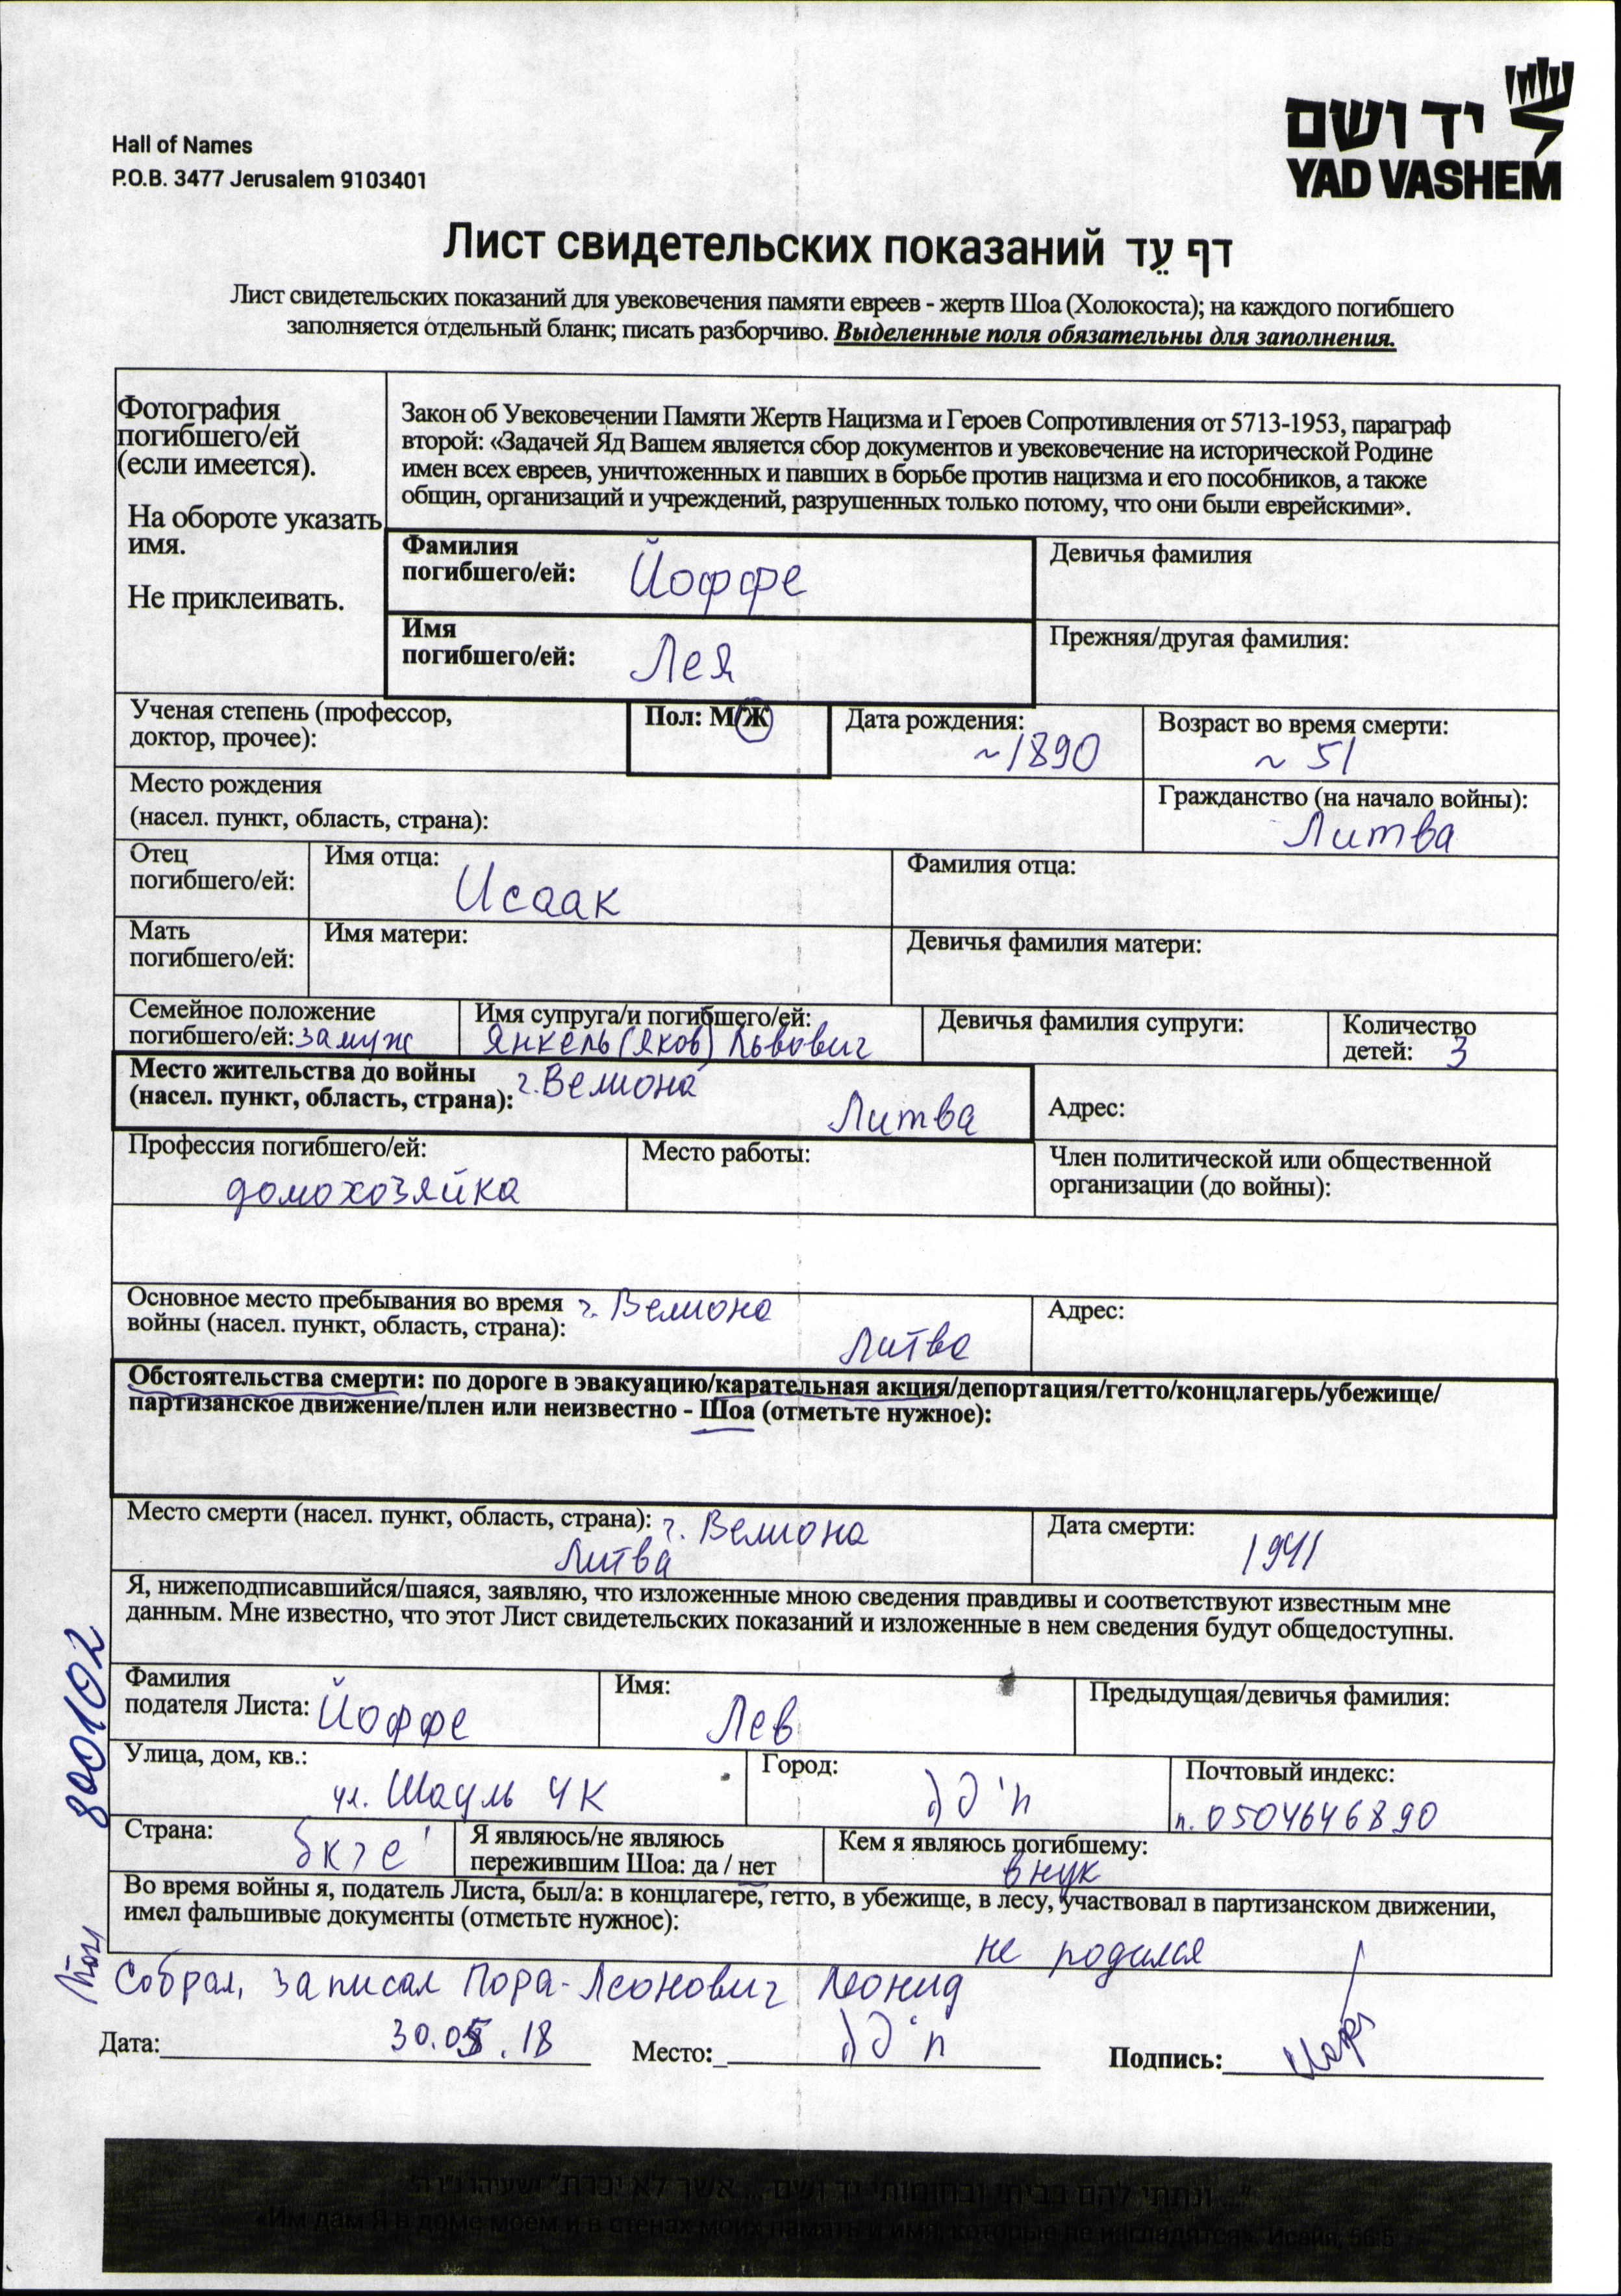 יד ושם
YAD VASHEM
Hall of Names
P.O.B. 3477 Jerusalem 9103401
Лист свидетельских показаний דף עֵד
Лист свидетельских показаний для увековечения памяти евреев - жертв Шоа (Холокоста); на каждого погибшего
заполняется отдельный бланк; писать разборчиво. Выделенные поля обязательны для заполнения.
Фотография
погибшего/ей
(если имеется).
На обороте указать
имя.
Не приклеивать.
Закон об Увековечении Памяти Жертв Нацизма и Героев Сопротивления от 5713-1953, параграф
второй: «Задачей Яд Вашем является сбор документов и увековечение на исторической Родине
имен всех евреев, уничтоженных и павших в борьбе против нацизма и его пособников, а также
общин, организаций и учреждений, разрушенных только потому, что они были еврейскими».
Фамилия
погибшего/ей: Йоффе
Девичья фамилия
Имя
погибшего/ей: Лея
Прежняя/другая фамилия:
Ученая степень (профессор,
доктор, прочее):
Пол: М/Ж
Дата рождения:
~1890
Возраст во время смерти:
~ 51
Место рождения
(насел. пункт, область, страна):
Гражданство (на начало войны):
Литва
Отец
погибшего/ей:
Имя отца:
Исаак
Фамилия отца:
Мать
погибшего/ей:
Имя матери:
Девичья фамилия матери:
Семейное положение
погибшего/ей: замуж
Имя супруга/и погибшего/ей:
Янкель (Яков) Львович
Девичья фамилия супруги:
Количество
детей: 3
Место жительства до войны г. Велиона
(насел. пункт, область, страна):
Литва
Адрес:
Профессия погибшего/ей:
домохозяйка
Место работы:
Член политической или общественной
организации (до войны):
Основное место пребывания во время г. Велиона
войны (насел. пункт, область, страна):
Литва
Адрес:
Обстоятельства смерти: по дороге в эвакуацию/карательная акция/депортация/гетто/концлагерь/убежище/
партизанское движение/плен или неизвестно - Шоа (отметьте нужное):
Место смерти (насел. пункт, область, страна): г. Велиона
Литва
Дата смерти:
1941
Я, нижеподписавшийся/шаяся, заявляю, что изложенные мною сведения правдивы и соответствуют известным мне
данным. Мне известно, что этот Лист свидетельских показаний и изложенные в нем сведения будут общедоступны.
Фамилия
подателя Листа: Йоффе
Имя:
Лев
Предыдущая/девичья фамилия:
Улица, дом, кв.:
ул. Шауль 4К
Город:
חיפה
Почтовый индекс:
п. 0504646890
Страна:
Я являюсь/не являюсь
пережившим Шоа: да / нет
Кем я являюсь погибшему:
внук
Во время войны я, податель Листа, был/а: в концлагере, гетто, в убежище, в лесу, участвовал в партизанском движении,
имел фальшивые документы (отметьте нужное):
не родился
Собрал, записал Пора-Леонович Леонид
Дата: 30.05.18
Место:
Подпись:
800102
"...ונתתי להם בביתי ובחומותי יד ושם... אשר לא יכרת" ישעיהו נ"ו ה'
«Им дам Я в доме моем и в стенах моих память и имя, которые не изгладятся». Исайя, 56:5